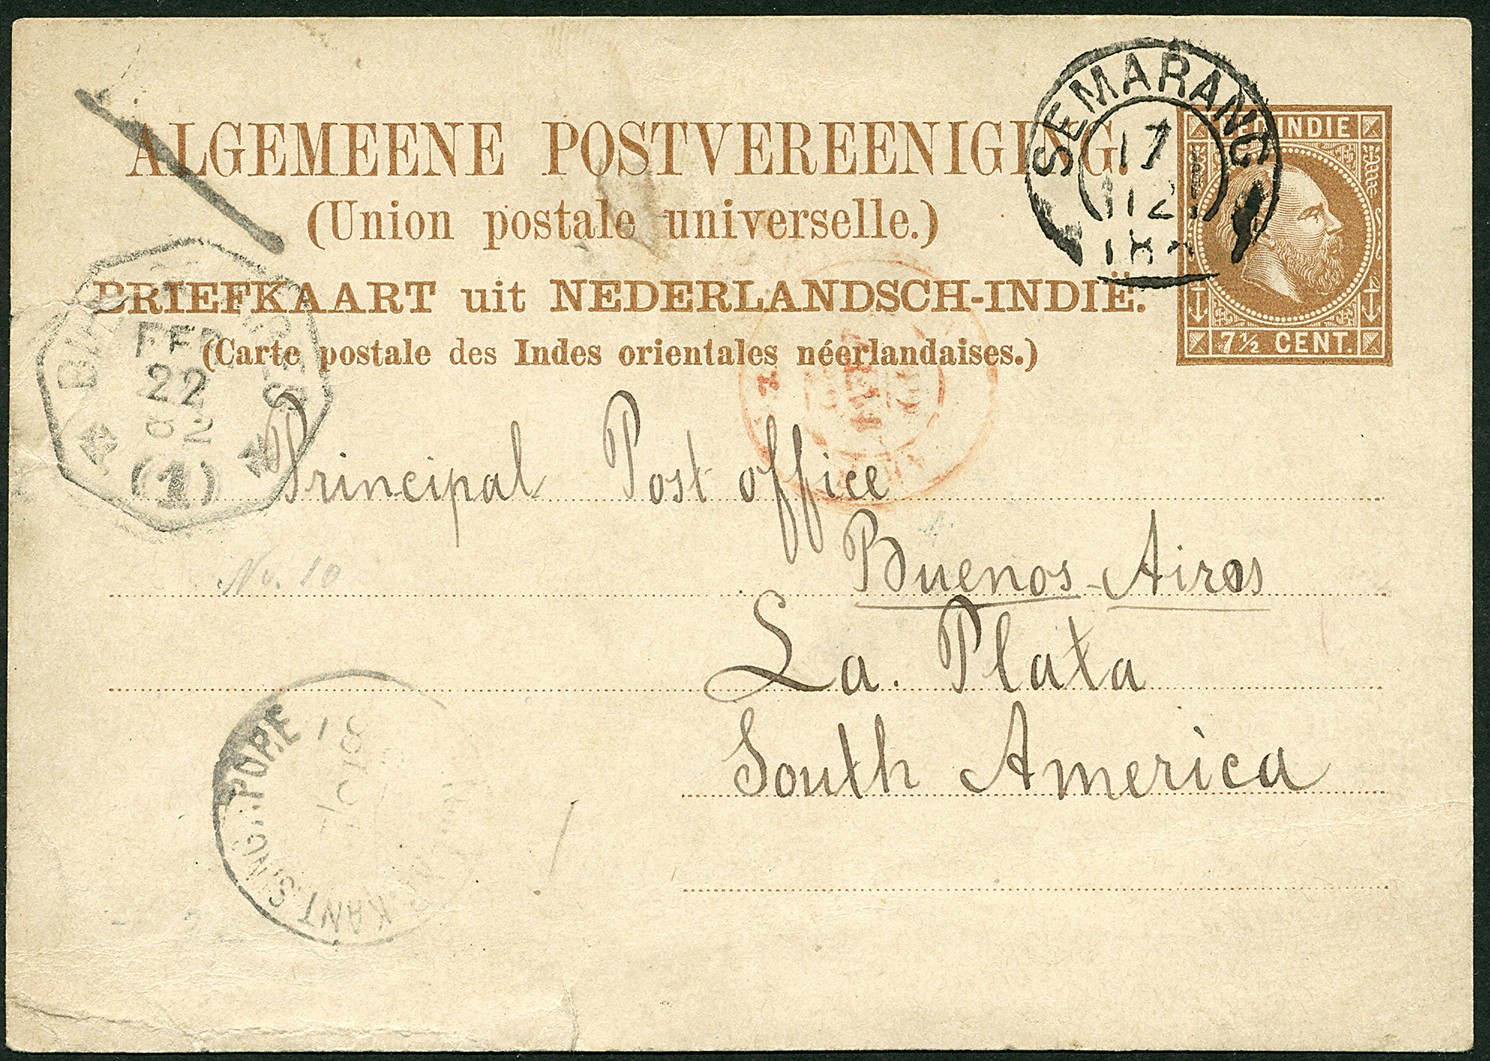 ALGEMEENE POSTVEREENIGING.
(Union postale universelle.)
BRIEFKAART uit NEDERLANDSCH-INDIË.
(Carte postale des Indes orientales néerlandaises.)
SEMARANG
17
12
INDIE
7½ CENT.
FEB
22
(1)
Principal Post office
No. 10
Buenos-Aires
La. Plata
South America
KANT. SINGAPORE